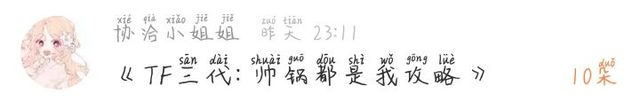 xié qià xiǎo jiě jiě zuó tiān
协洽小姐姐 昨天 23:11
sān dài shuài guō dōu shì wǒ gōng lüè duǒ
《TF三代:帅锅都是我攻略》 10朵